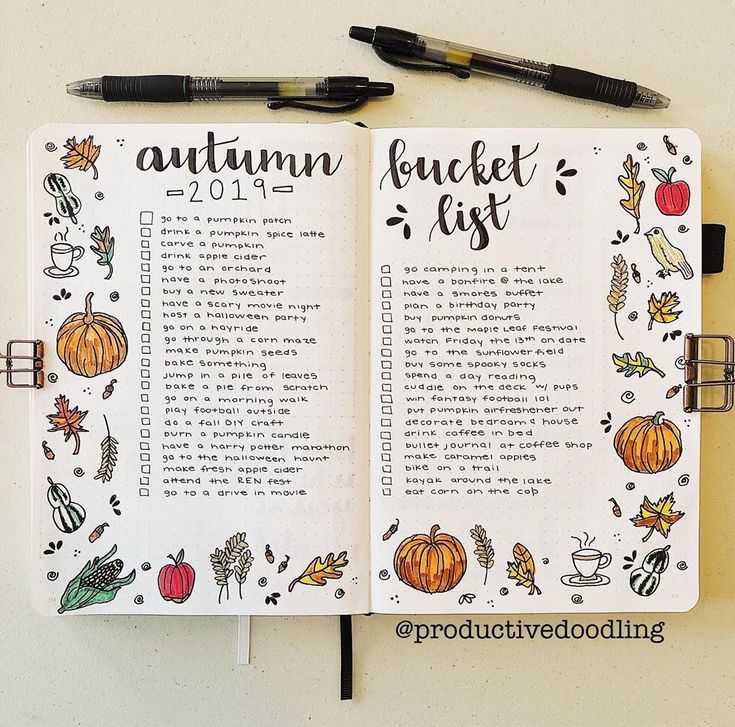 autumn
-2019-
go to a pumpkin patch
drink a pumpkin spice latte
carve a pumpkin
drink apple cider
go to an orchard
have a photoshoot
buy a new sweater
have a scary movie night
host a halloween party
go on a hayride
go through a corn maze
make pumpkin seeds
bake something
jump in a pile of leaves
bake a pie from scratch
go on a morning walk
play football outside
do a fall DIY craft
burn a pumpkin candle
have a harry potter marathon
go to the halloween haunt
make fresh apple cider
attend the REN fest
go to a drive in movie
bucket
list
go camping in a tent
have a bonfire @ the lake
have a smores buffet
plan a birthday party
buy pumpkin donuts
go to the Maple Leaf Festival
watch Friday the 13th on date
go to the sunflower field
buy some spooky socks
spend a day reading
cuddle on the deck w/ pups
win fantasy football 101
put pumpkin airfreshener out
decorate bedroom & house
drink coffee in bed
bullet journal at coffee shop
make caramel apples
bike on a trail
kayak around the lake
eat corn on the cob
@productivedoodling